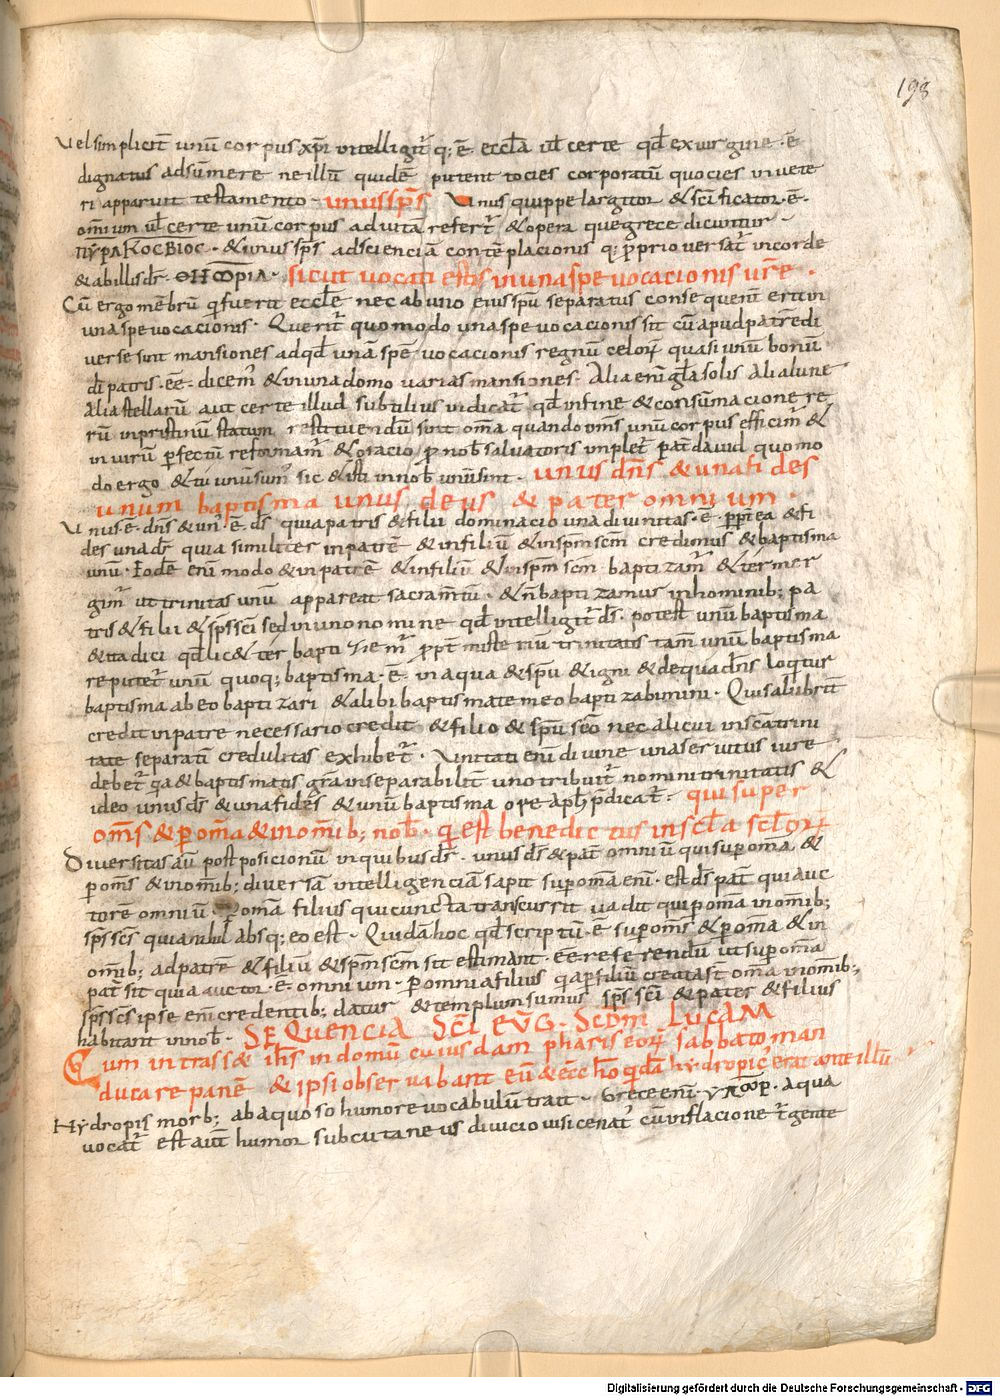 198
Vel simpliciť unū corpus xp̄i intelligit̄ q; ē ecclā ul̄ certe qd̄ ex uirgine · ē
dignatus adsūmere ne illū quidē putent tocies corporatū quocies in uete
ri apparuit testamento · unus sp̄s Vnus quippe largitor & sc̄ificator · ē ·
om̄ium ul̄ certe unū corpus ad uitā refert̄ & opera que grece dicuntur ·
ΠΥΡΑΚΟCΒΙΟC · & unus sp̄s ad scienciā contēplacionis q; p̄prio uersat̄ in corde
& ab illis dr̄ · ΘΗΩΡΙΑ · sicut uocati estis in una spe uocacionis ur̄e ·
Cū ergo mēbrū q̄ fuerit eccl̄e nec ab uno eius sp̄u separatus consequent̄ erit in
una spe uocacionis · Querit̄ quomodo una spe uocacionis sit cū apud patrē di
uerse sint mansiones ad qd̄ unā spē uocacionis regnū celoꝝ quasi unū bonū
dī patris · ēē · dicem̄ & in una domo uarias mansiones · Alia eni gl̄a solis Alia lune
Alia stellarū aut certe illud subtilius indicat̄ qd̄ in fine & consūmacione re
rū in pristinū statum restituendū sint om̄a quando om̄s unū corpus efficim̄ &
in uirū ꝑfectū reformam̄ & oracio ꝓ nob̄ saluatoris implet̄ pat̄ dauid quomo
do ergo & tu unū sum̄ sic & isti in nob̄ unū sint · unus dn̄s & una fides
unum baptisma unus deus & pater omnium ·
Vnus · ē · dn̄s & un̄ · ē · ds̄ quia patris & filii dominacio una diuinitas · ē · ꝓpt̄ea & fi
des una dr̄ quia similiter in patrē & in filiū & in sp̄m sc̄m credimus & baptisma
unū · Eodē eni modo & in patrē & in filiū & in sp̄m sc̄m baptizam̄ & ter mer
gim̄ ut trinitas unū appareat sacramtū · & n̄ baptizamus in hominib; pa
tris & filii & sp̄s sc̄i sed in uno nomine qd̄ intelligit̄ ds̄ · potest unū baptisma
& ita dici qd̄ lic& ter baptizem̄ ꝓpt̄ misteriū trinitatis tam̄ unū baptisma
reputet̄ unū quoq; baptisma · ē · in aqua & sp̄u & igni & de qua dn̄s loqtur
baptisma abeo baptizari & alibi baptismate meo baptizabimini · Qui salubrit̄
credit in patre necessario credit & filio & sp̄u sc̄o nec alicui in sc̄a trini
tate separatī credulitas exhibet̄ · Vnitati eni diuine una seruitus iure
debet̄ q̄a & baptismatis gr̄a inseparabilit̄ uno tribuit̄ nomini trinitatis &
ideo unus ds̄ & una fides & unū baptisma ore apl̄i p̄dicat̄ · qui super
om̄s & ꝑ om̄a & in om̄ib; nob̄ · q̄ est benedictus in sc̄la scl̄oꝝ
Diuersitas aū p̄posicionū in quibus dr̄ · unus ds̄ & pat̄ omniū qui suꝑ om̄a &
ꝑ om̄s & in om̄ib; diuersā intelligenciā sapit suꝑ om̄a eni · est ds̄ pat̄ qui auc
torē omniū ꝑ om̄a filius qui cuncta transcurrit uadit qui ꝑ om̄a in om̄ib;
sp̄s sc̄s quia nihil absq; eo est · Quidā hoc qd̄ scriptū · ē suꝑ om̄s & ꝑ om̄a & in
om̄ib; ad patrē & filiū & sp̄m sc̄m sit estimant · ēē referendū ut suꝑ om̄a
pat̄ sit quia auctor · ē · omnium · ꝑ omnia filius q̄a ꝑ filiū creata st̄ om̄a in om̄ib;
sp̄s sc̄s ipse eni credentib; datur & templum sumus sp̄s sc̄i & pater & filius
habitant in nob̄ · SEQUENCIA SC̄I EVḠ · SCDM̄ LUCAM
Cum intrass& ih̄s in domū cuiusdam phariseoꝝ sabbato man
ducare panē & ipsi obseruabant eū & ecc̄ ho q̄dā hydropic̄ erat ante illū
Hydropis morb; ab aquoso humore uocabulū trait · Grece eni · ΥΔΩΡ · aqua
uocat̄ est aut̄ humor subcutaneus de uicio uisice nat̄ cū inflacione t̄gente
Digitalisierung gefördert durch die Deutsche Forschungsgemeinschaft - DFG